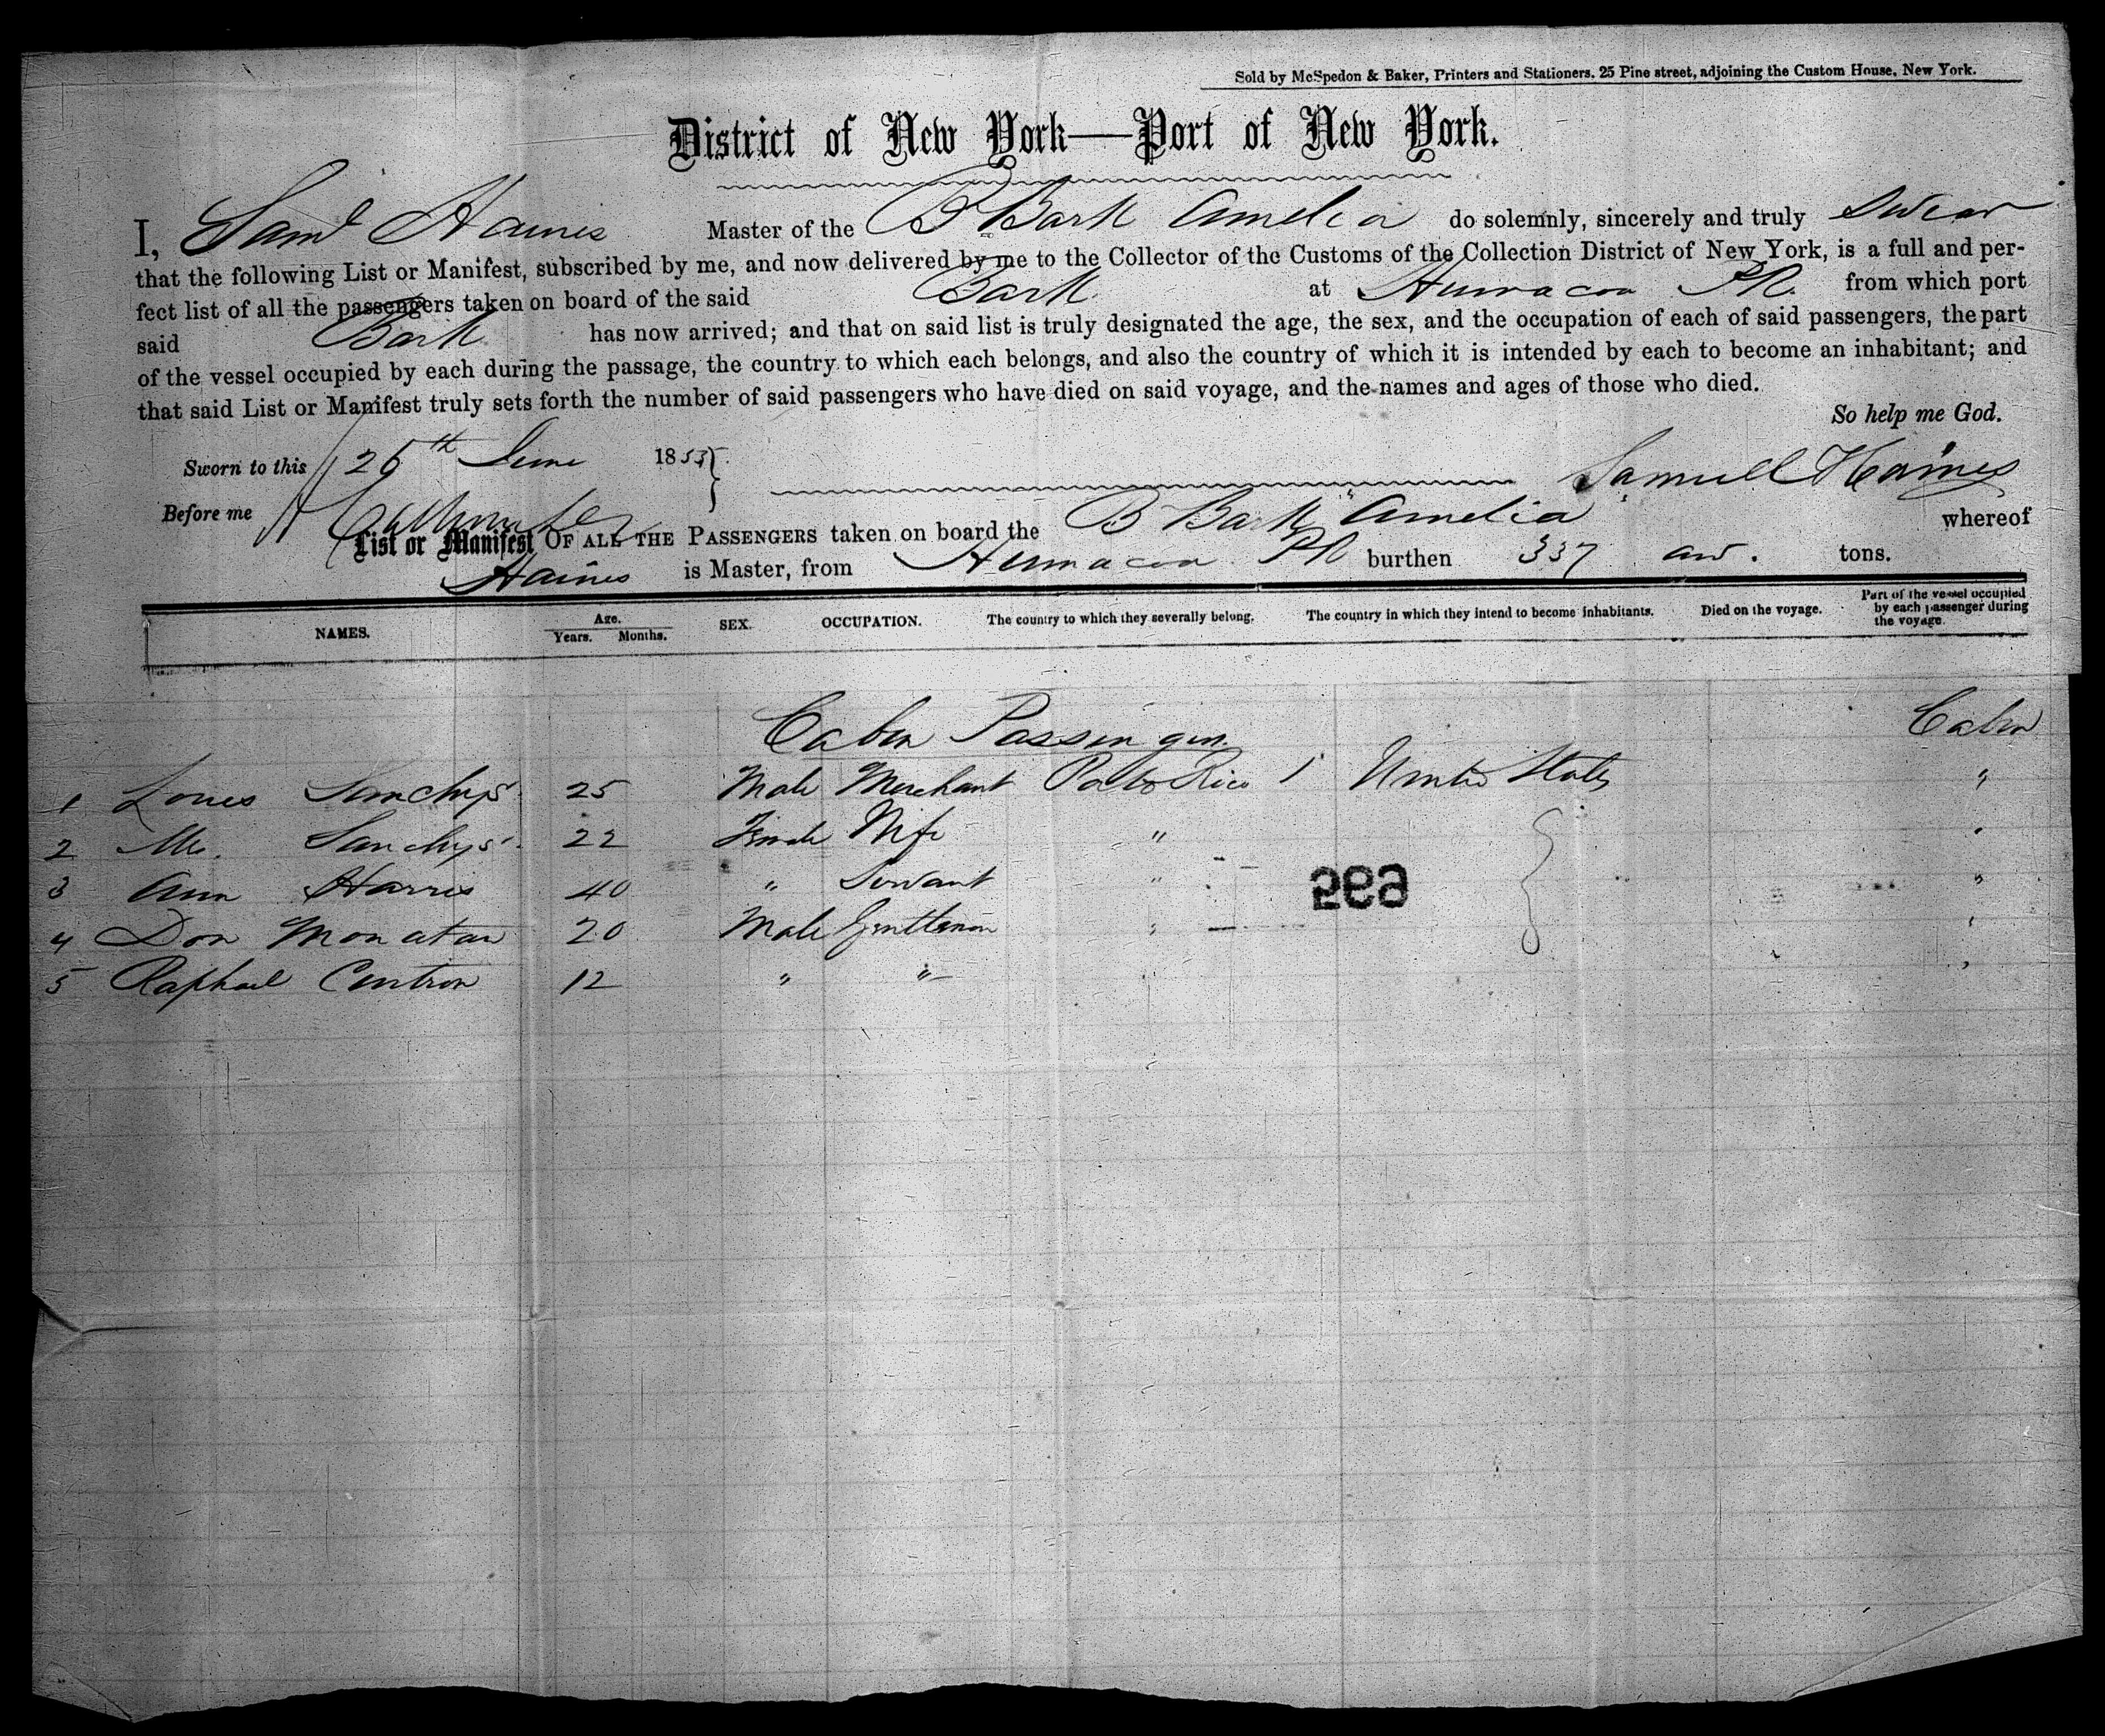 Sold by McSpedon & Baker, Printers and Stationers. 25 Pine street, adjoining the Custom House, New York.
District of New York—Port of New York.
I, Saml Haines Master of the B Bark Amelia do solemnly, sincerely and truly Swear
that the following List or Manifest, subscribed by me, and now delivered by me to the Collector of the Customs of the Collection District of New York, is a full and per-
fect list of all the passengers taken on board of the said Bark at Humacoa PR. from which port
said Bark has now arrived; and that on said list is truly designated the age, the sex, and the occupation of each of said passengers, the part
of the vessel occupied by each during the passage, the country to which each belongs, and also the country of which it is intended by each to become an inhabitant; and
that said List or Manifest truly sets forth the number of said passengers who have died on said voyage, and the names and ages of those who died.
So help me God.
Sworn to this 25th June 1853
Samuel Haines
Before me
List or Manifest OF ALL THE PASSENGERS taken on board the B Bark "Amelia" whereof
Haines is Master, from Humacoa PR burthen 337 tons.
NAMES. Age. Years. Months. SEX. OCCUPATION. The country to which they severally belong. The country in which they intend to become inhabitants. Died on the voyage. Part of the vessel occupied by each passenger during the voyage.
Cabin Passengers. Cabin
1 Loues Sanchys 25 Male Merchant Porto Rico 1 United States "
2 Mrs. Sanchys 22 Female Wife " "
3 Ann Harris 40 " Servant " "
695
4 Don Monatan 20 Male Gentleman " "
5 Raphael Centron 12 " " " "